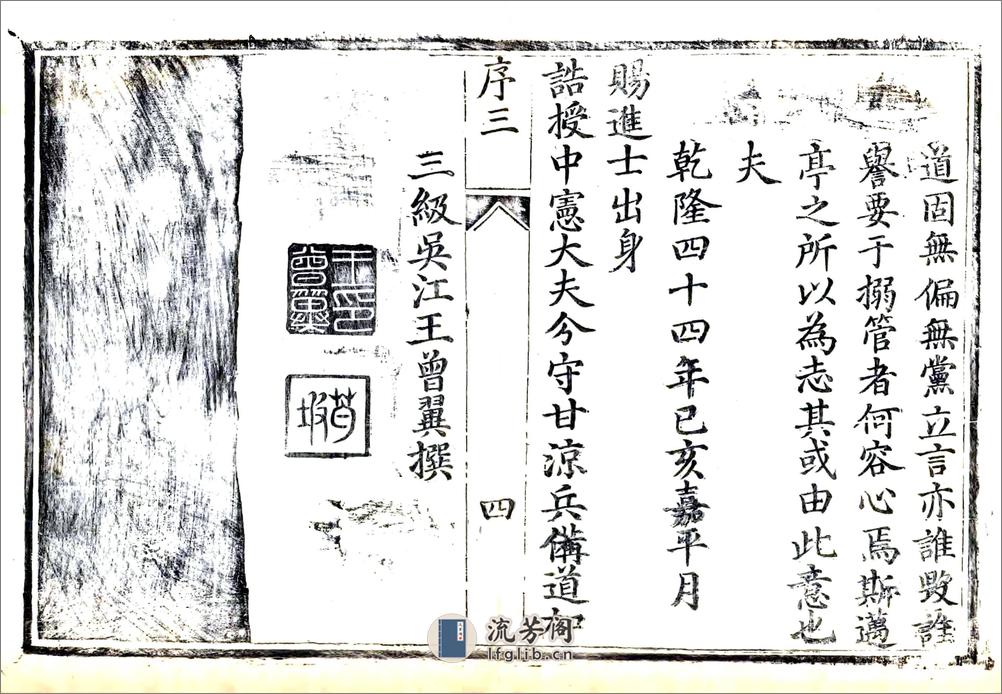 道固無偏無黨立言亦誰毀誰
譽要于搦管者何容心焉斯邁
亭之所以為志其或由此意也
夫
乾隆四十四年已亥嘉平月
賜進士出身
誥授中憲大夫分守甘涼兵備道加
序三
四
三級吳江王曾翼撰
王曾翼印
流芳阁
lfglib.cn